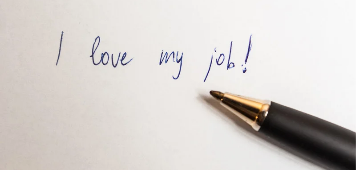 I love my job!